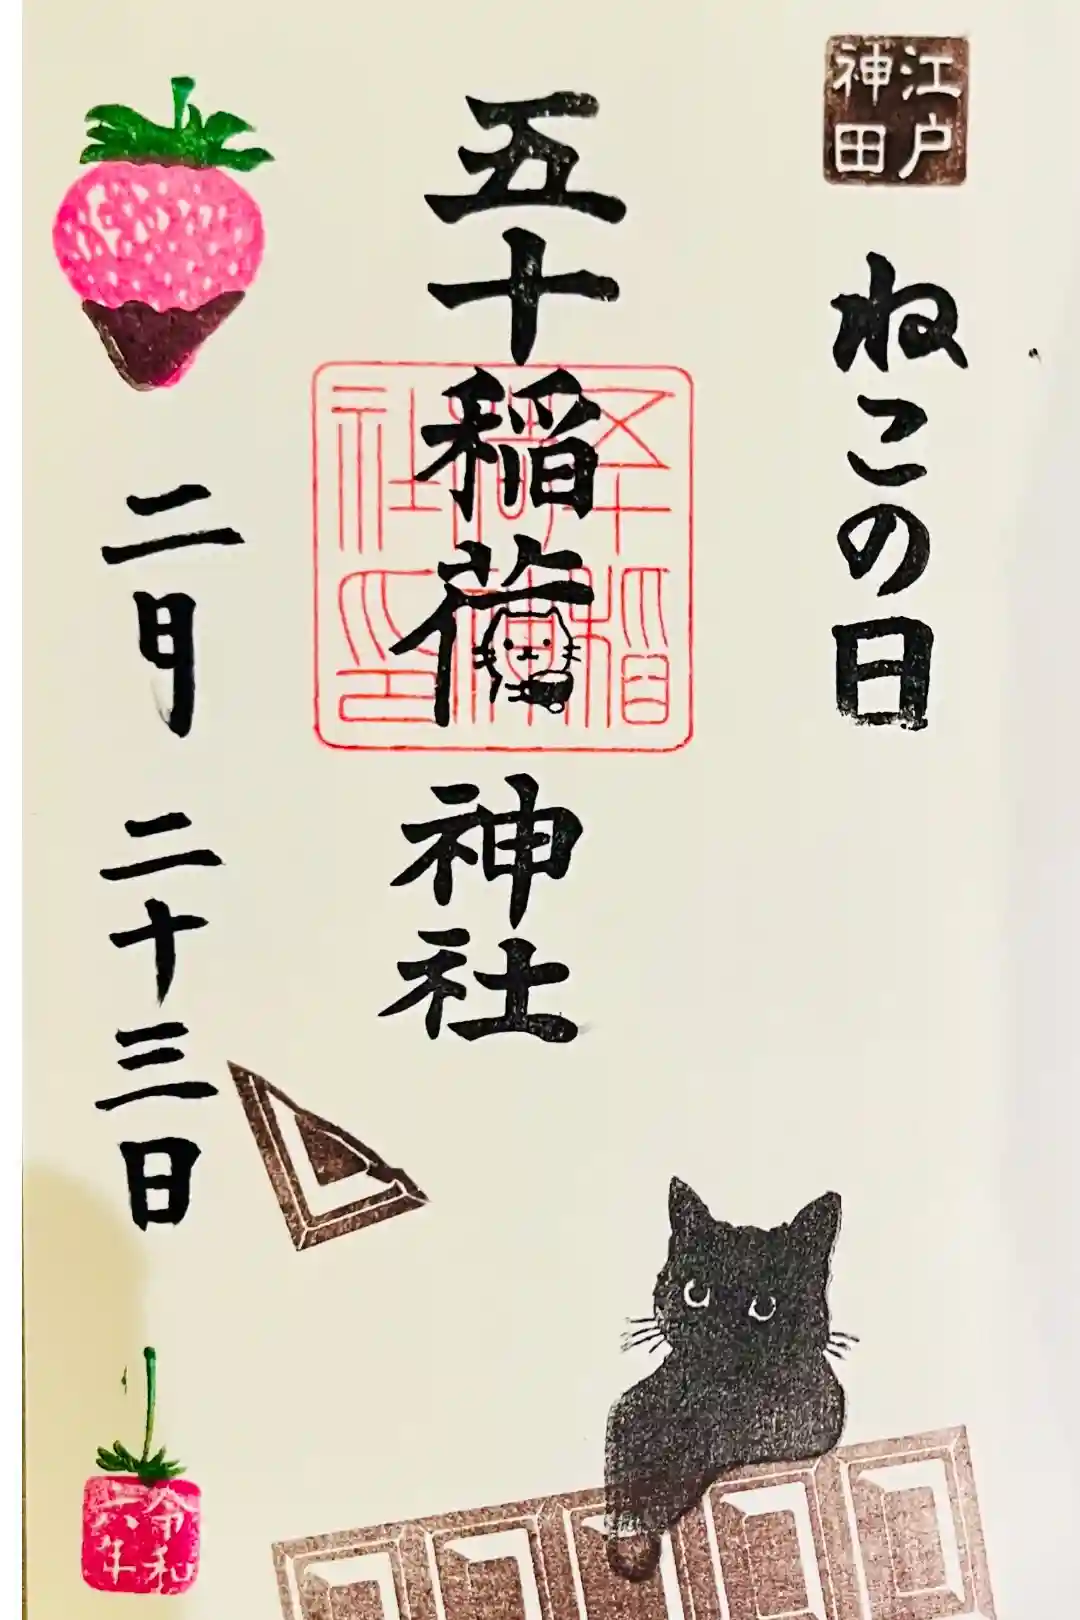 江戸
神田
ねこの日
五十稲荷
神社
五十稲
荷神
社印
二月
二十三日
令和
六年